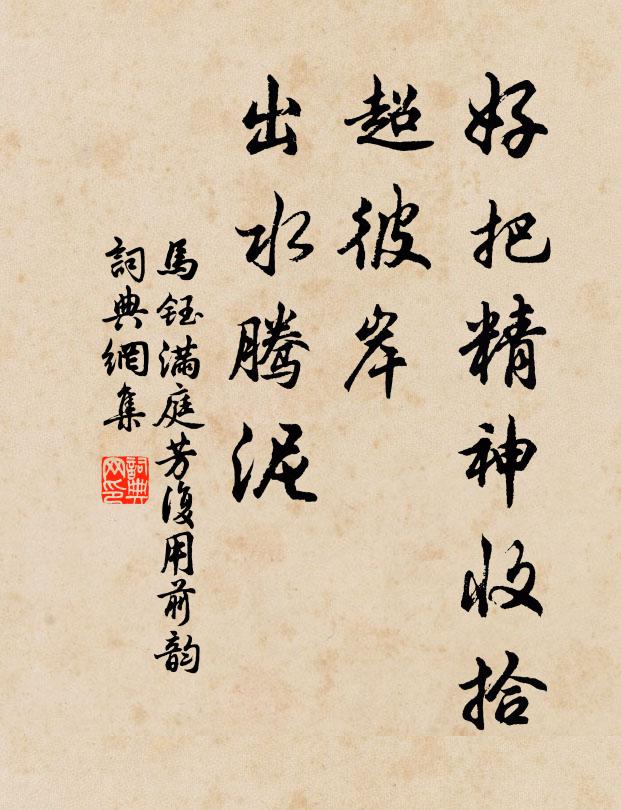 好把精神收拾
超彼岸
出水腾泥
馬鈺滿庭芳復用前韵
詞典網集
詞典网印